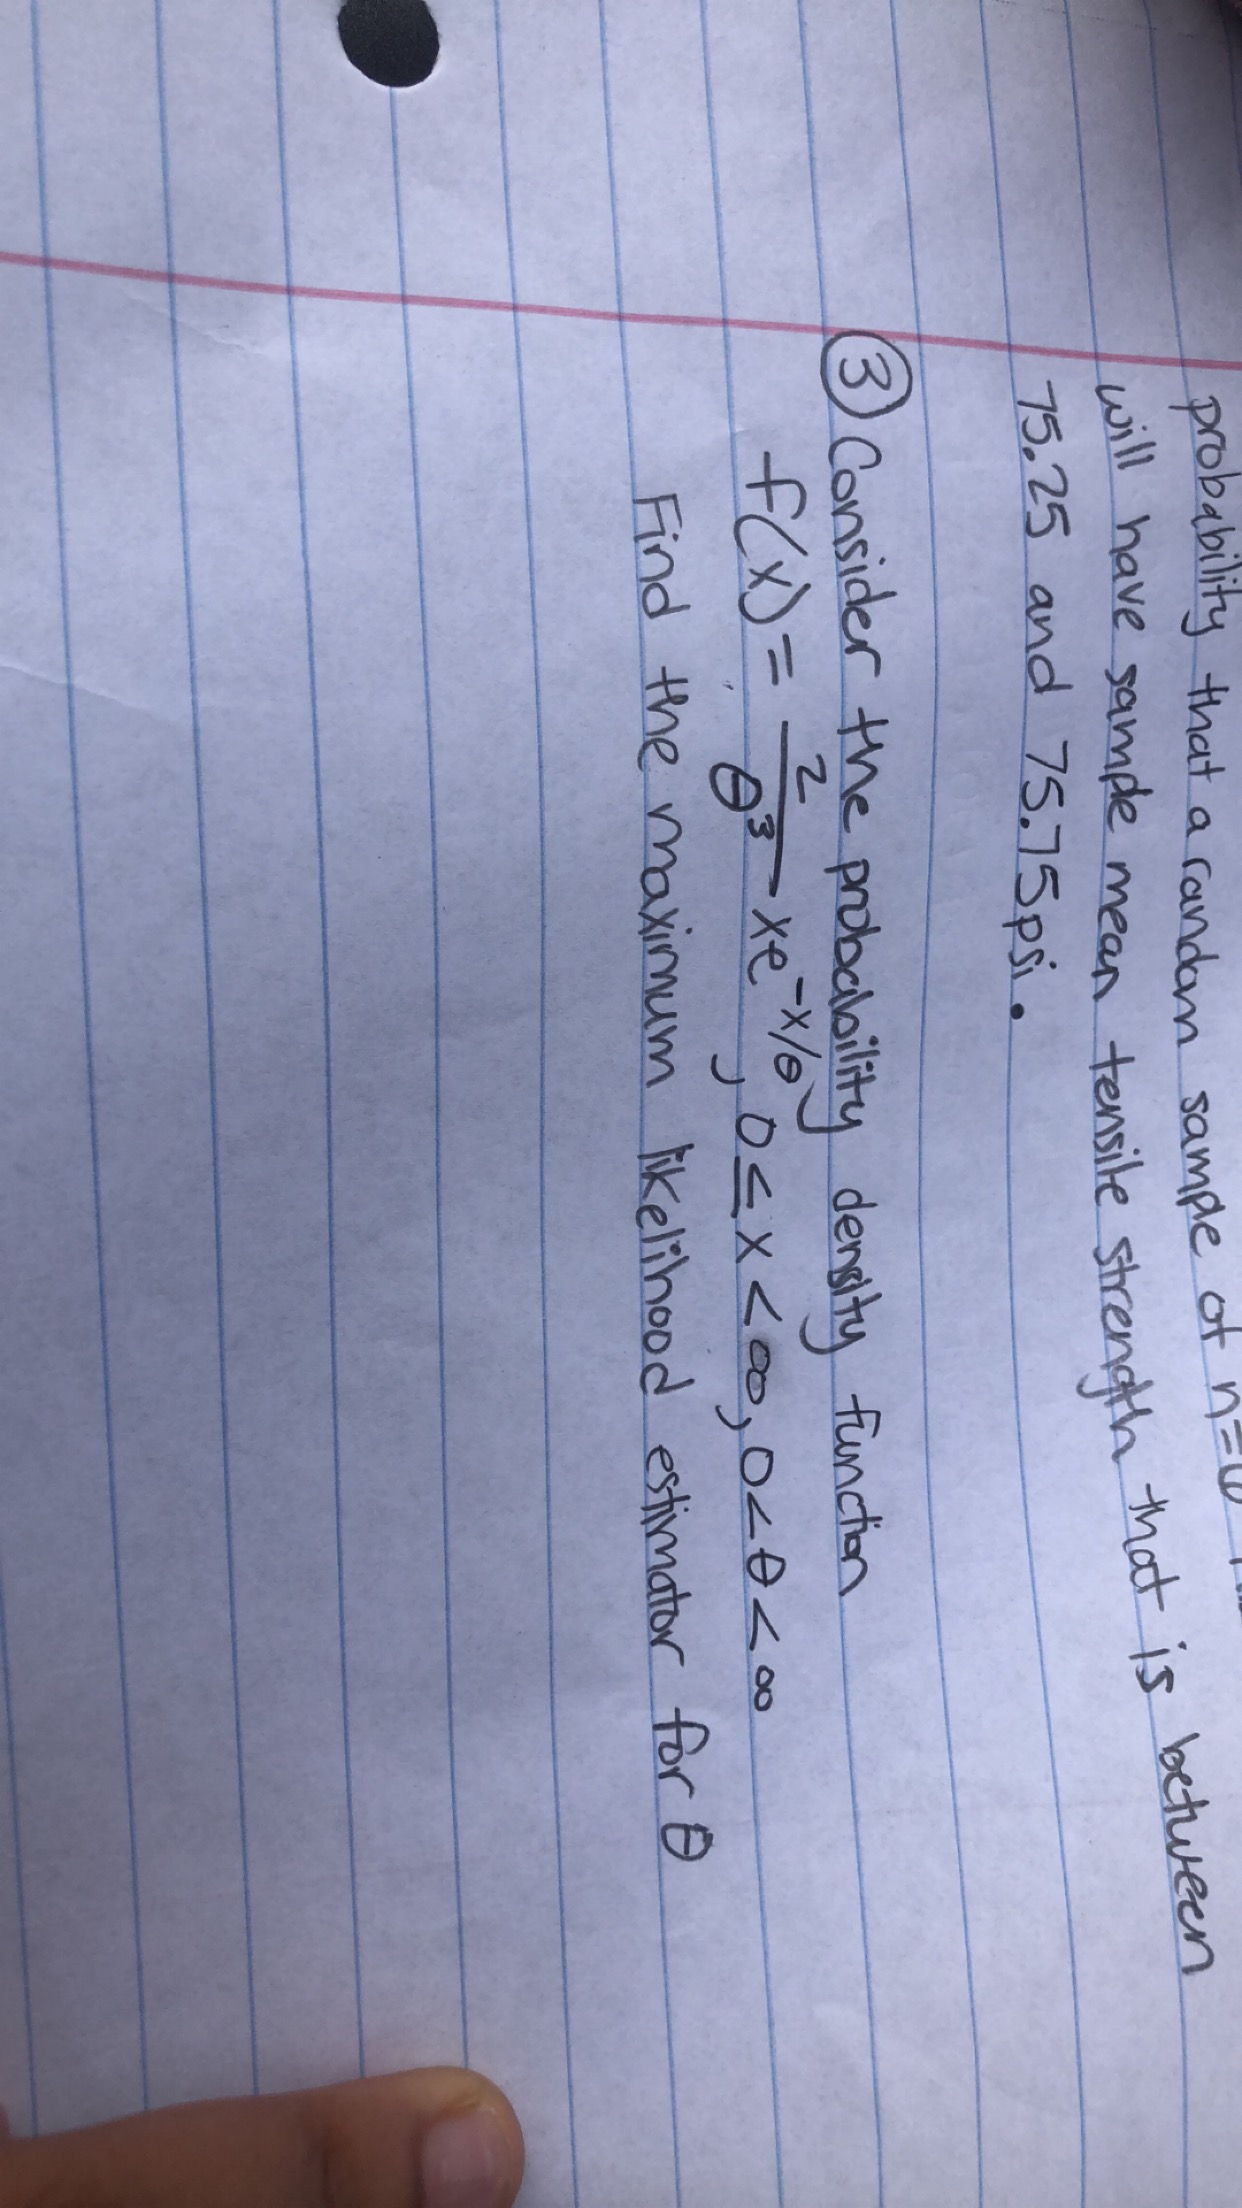 probability that a random sample of n=6
will have sample mean tensile strength that is between
75.25 and 75.75psi.
③ Consider the probability density function
f(x) = 2/θ³ xe^(-x/θ), 0 ≤ x < ∞, 0 < θ < ∞
Find the maximum likelihood estimator for θ